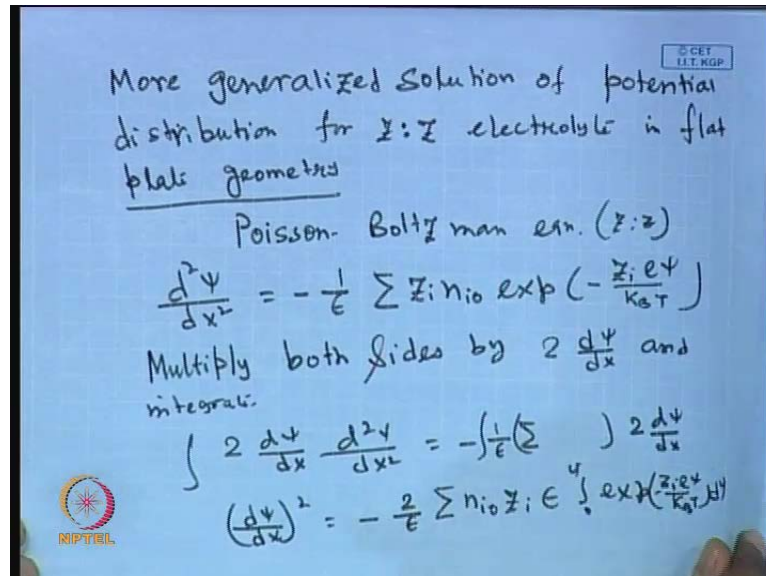 © CET
I.I.T. KGP
More generalized Solution of potential
distribution for Z:Z electrolyte in flat
plate geometry
Poisson- Boltzman eqn. (z:z)
d²ψ/dx² = - 1/ϵ Σ Zi nio exp (- Zi eψ/KBT)
Multiply both sides by 2 dψ/dx and
integrate.
∫ 2 dψ/dx d²ψ/dx² = -∫ 1/ϵ (Σ ) 2 dψ/dx
(dψ/dx)² = - 2/ϵ Σ nio Zi ∈ ∫₀^ψ exp(-Zi eψ/KBT) dψ
NPTEL